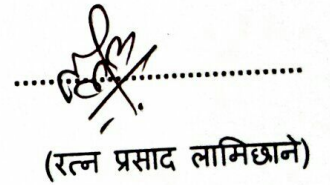 (रत्न प्रसाद लामिछाने)